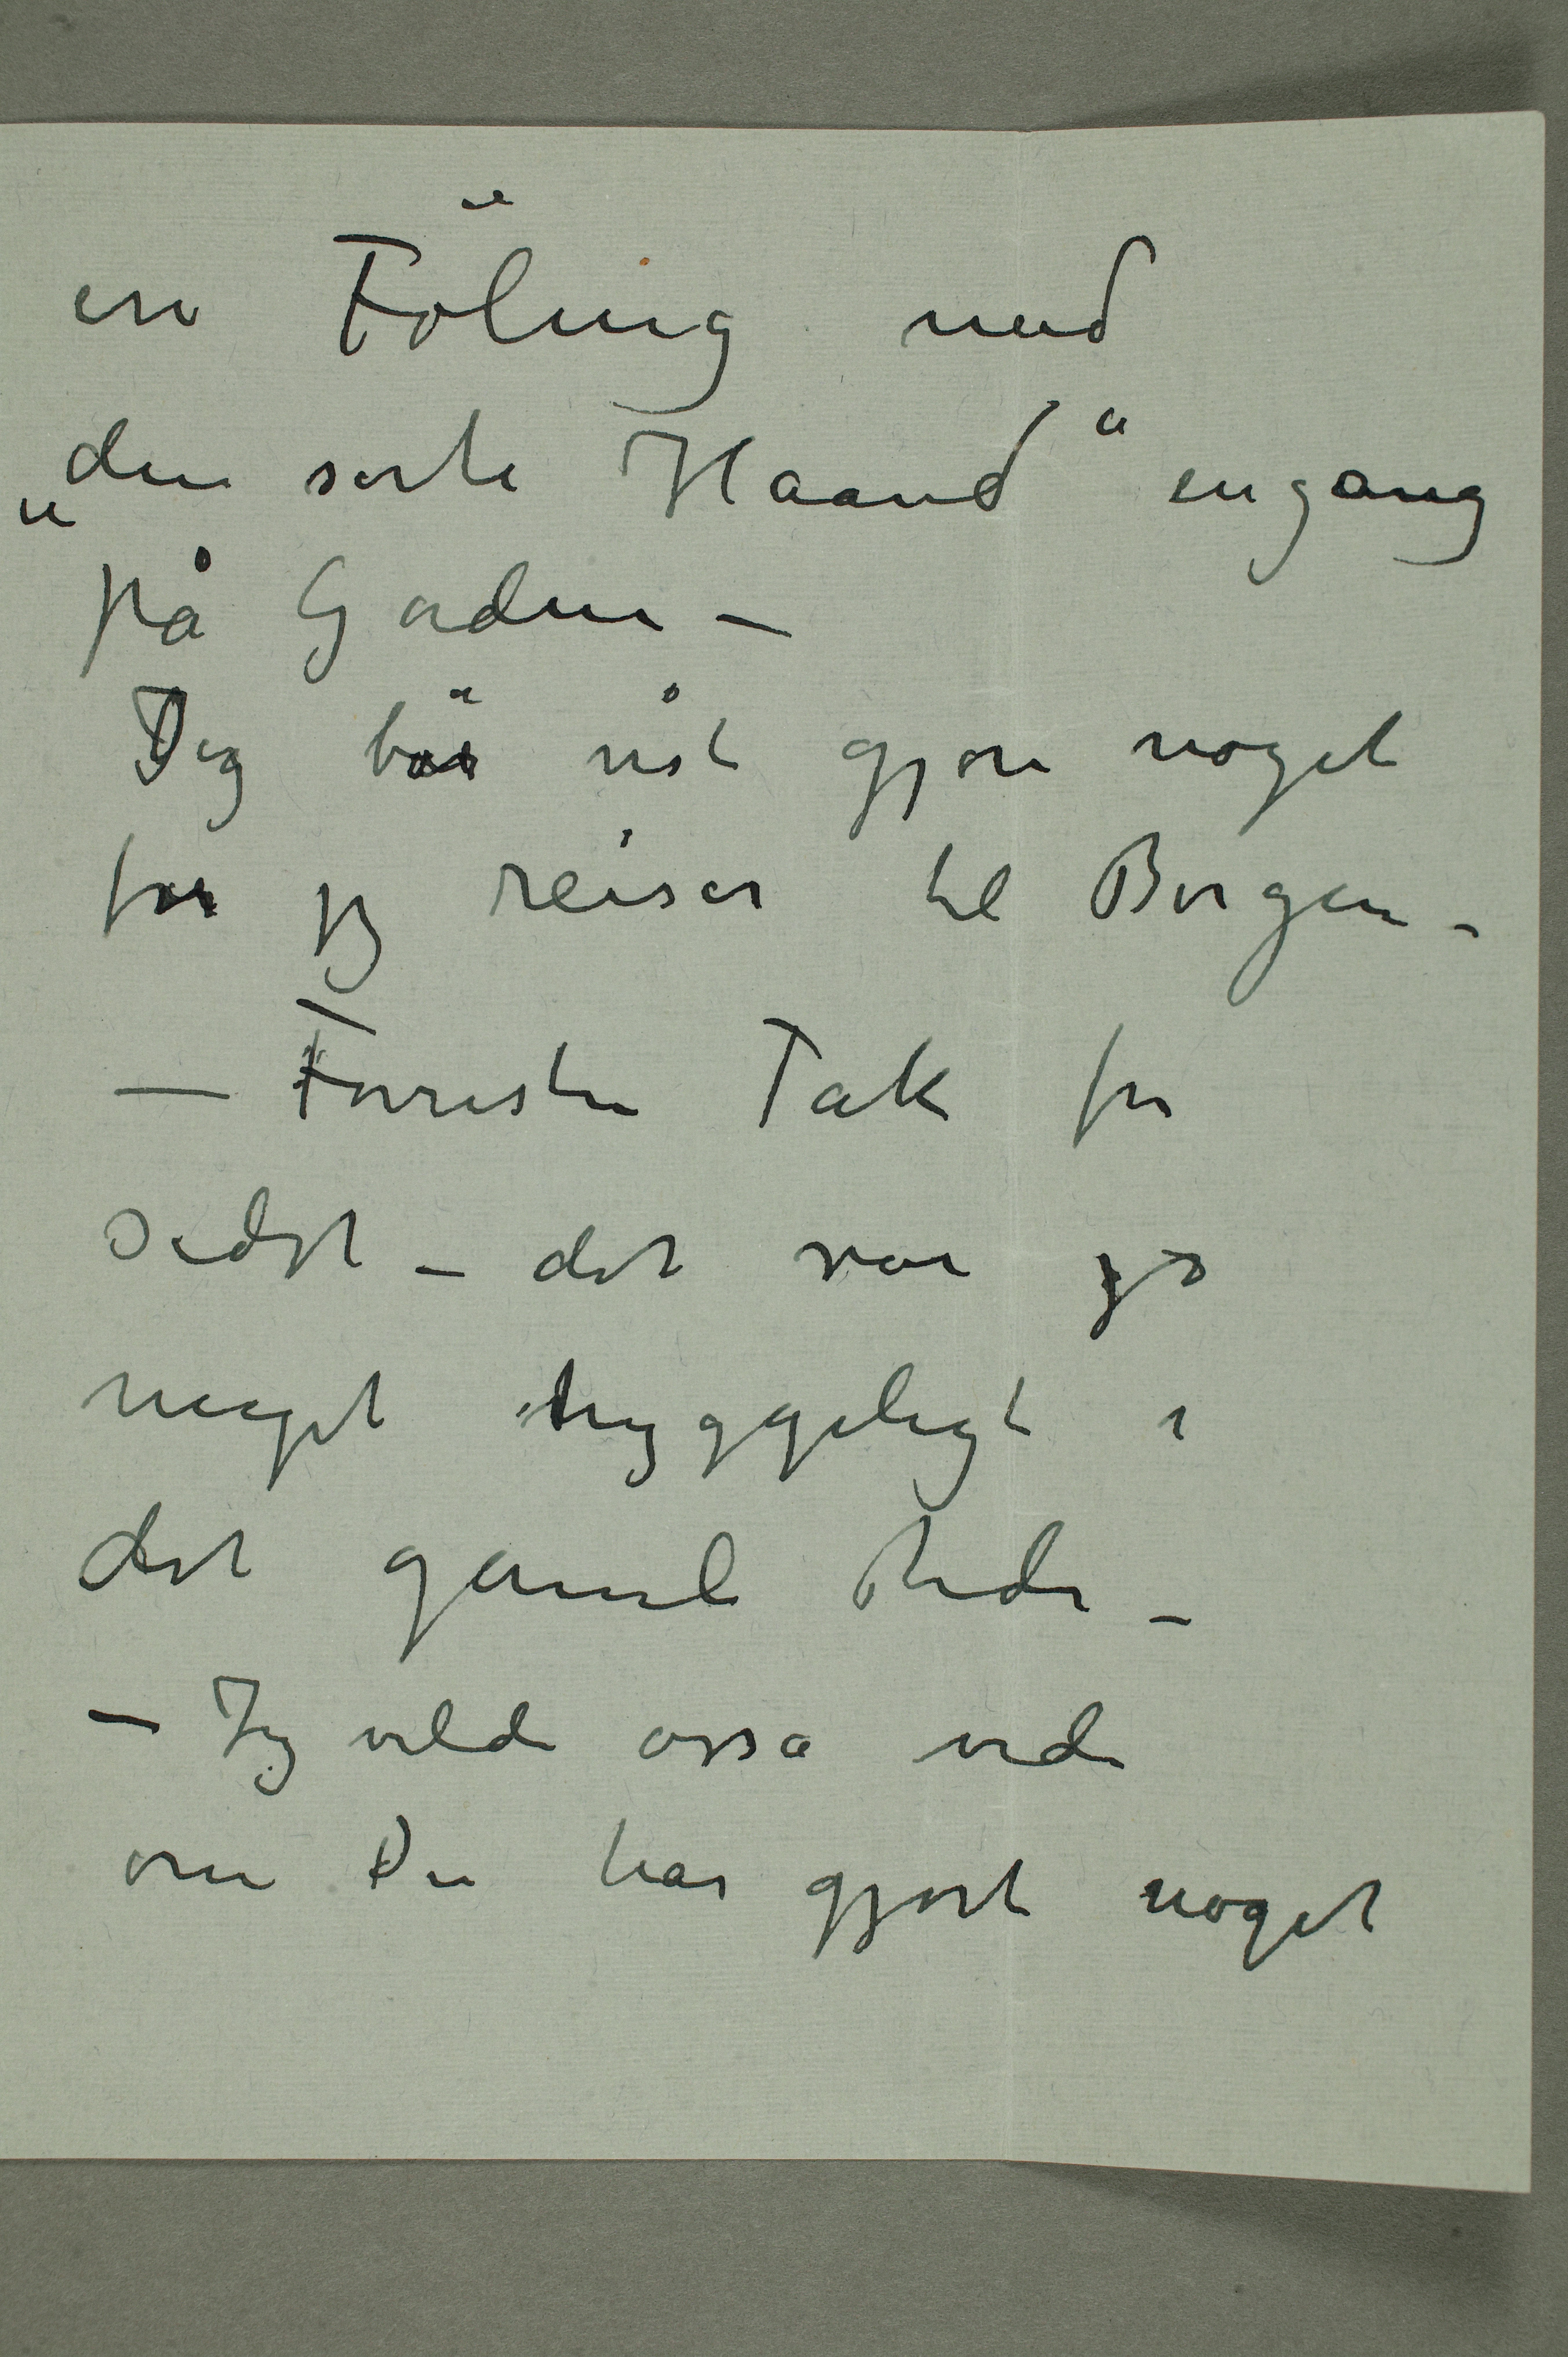 en Föling med
„den sorte Haand“ engang
på Gaden –
Jeg bör nåt gjøre noget
før jeg reiser til Bergen –
– Forresten Tak for
sidst – det var jo
meget hyggeligt i
det gamle Rede –
– Jeg vilde osså vide
om Du har gjort noget